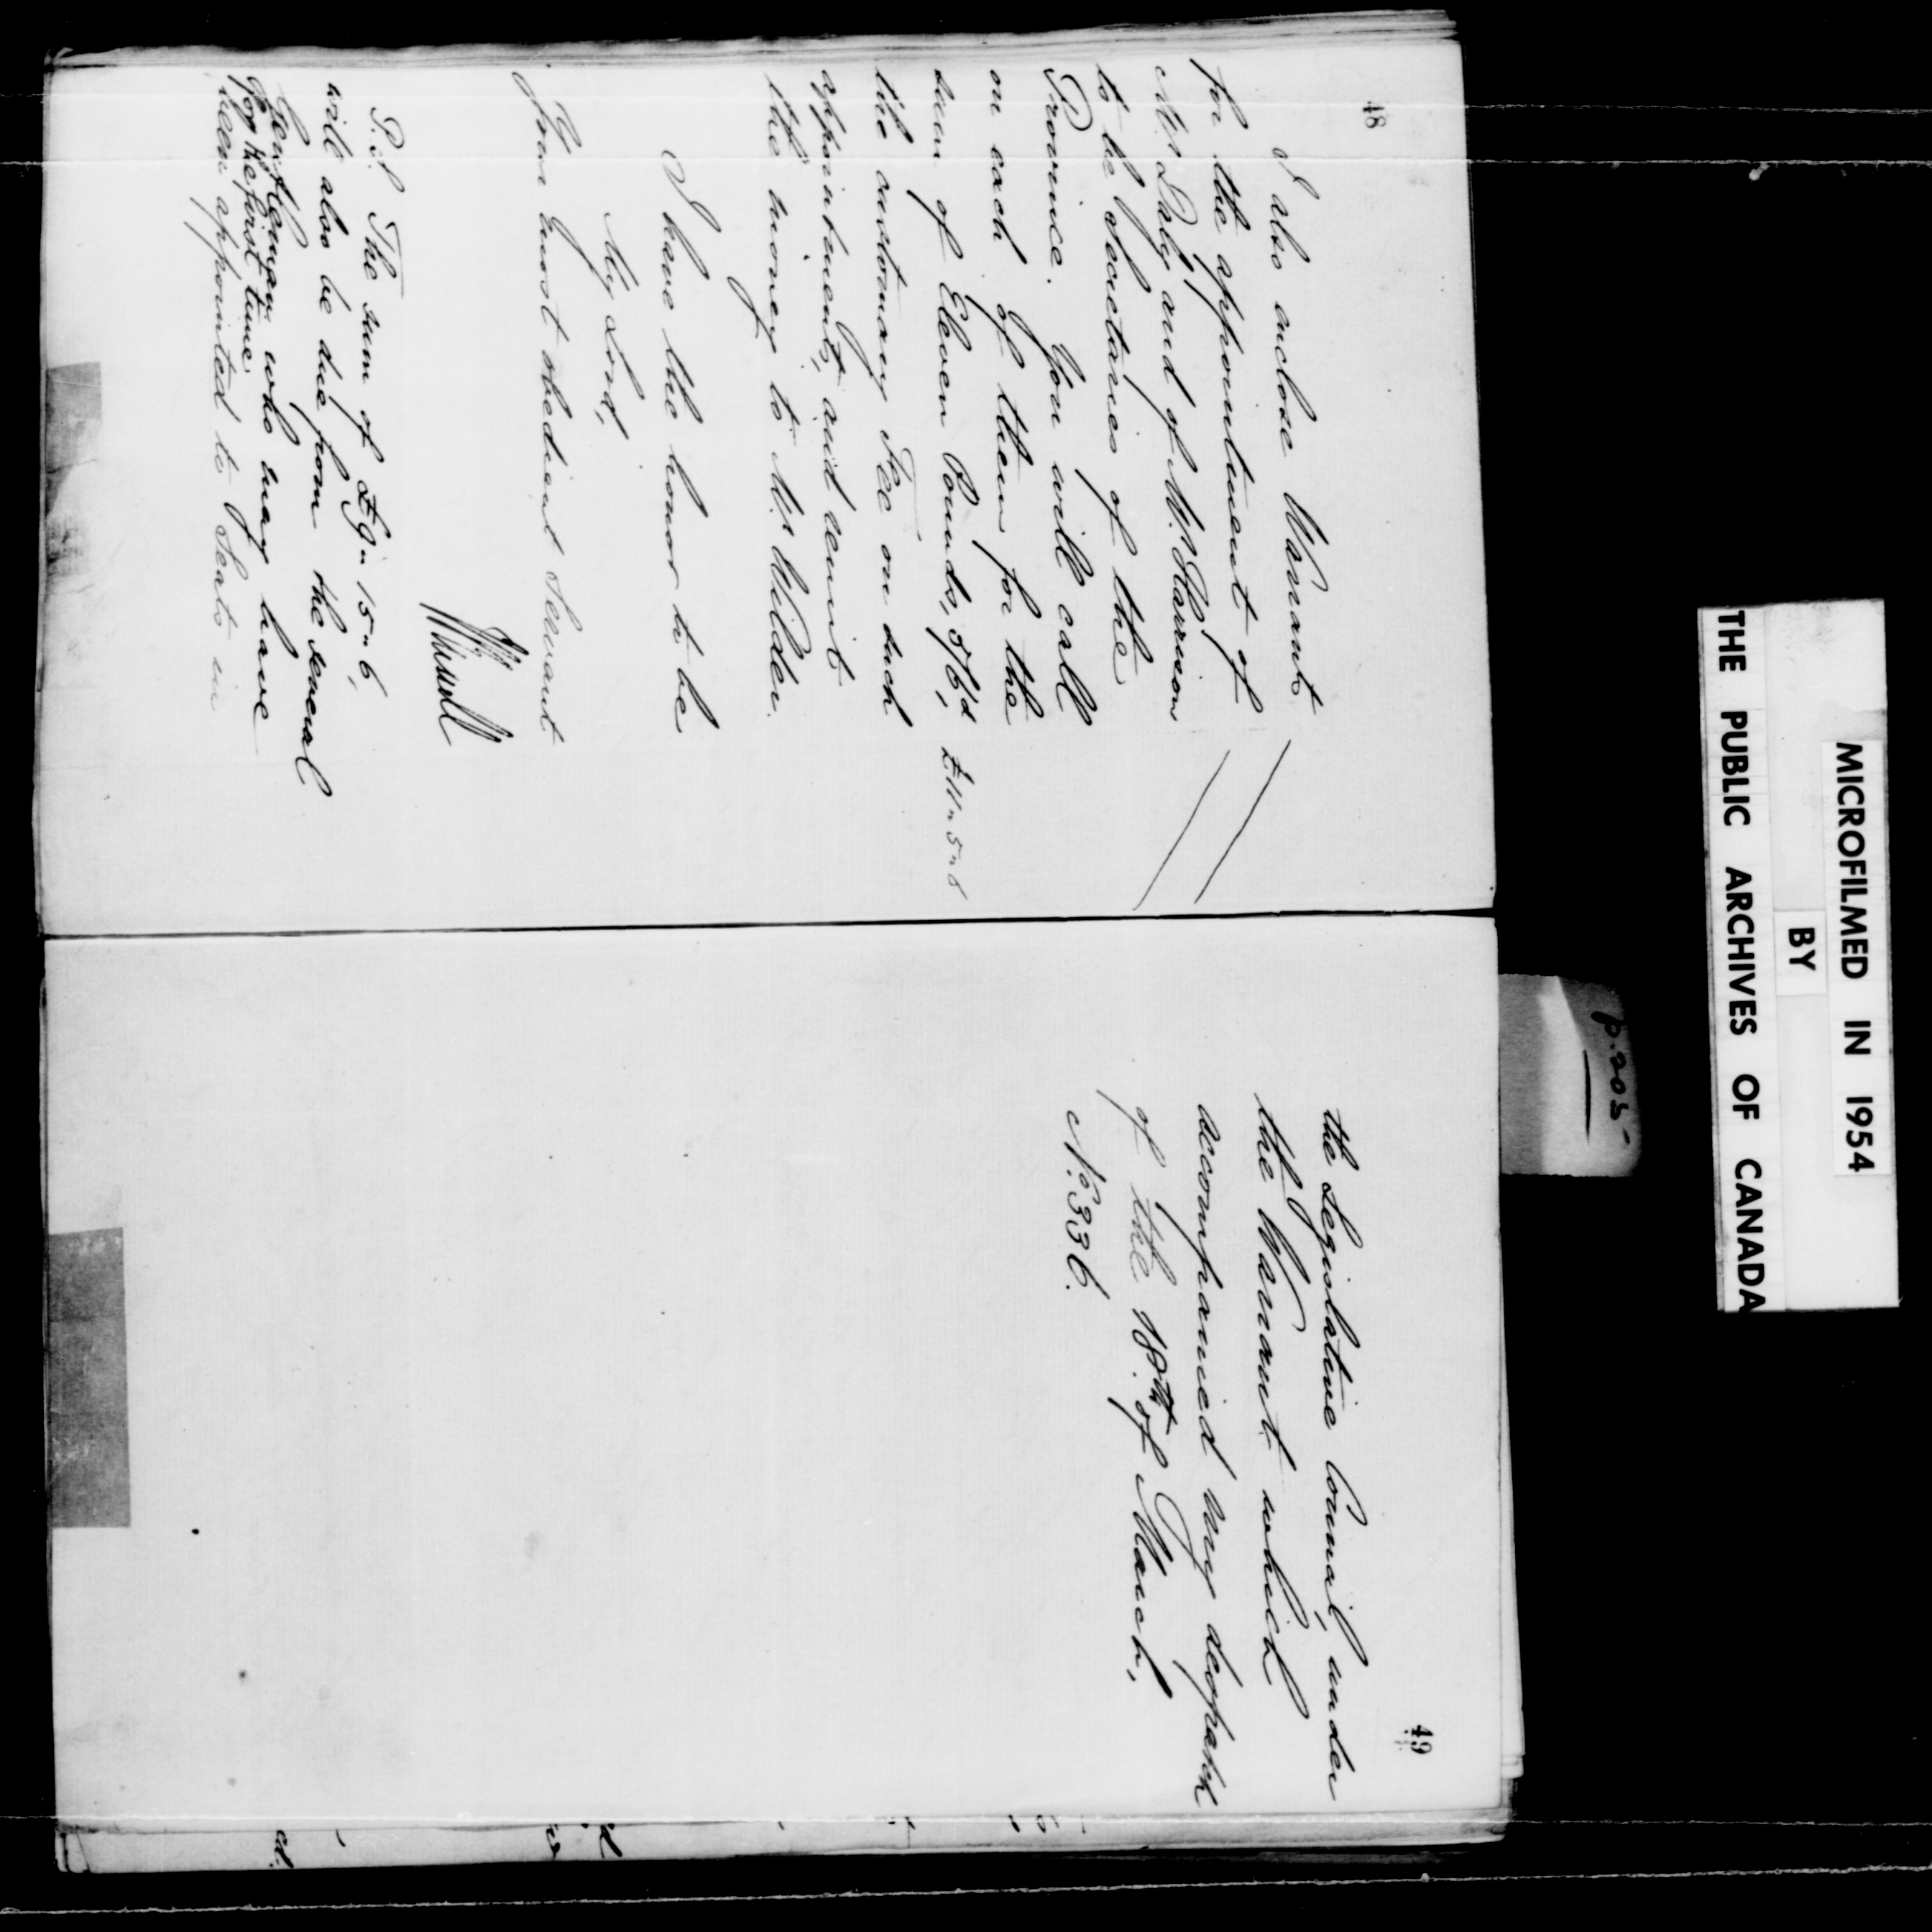 48
I also enclose Warrants
for the appointment of
Mr Daly and of Mr Harrison
to be Secretaries of the
Province. You will call
on each of them for the
sum of Eleven Pounds, 5/6d, £11 " 5 " 6
the customary Fee on such
appointments, and remit
the money to Mr Wilder.
I have the honor to be
My Lord,
Your most obedient Servant
JRussell
P.S. The sum of £9 " 15 " 6,
will also be due from the several
Gentlemen who may have
for the first time
been appointed to Seats in
49
the Legislative Council, under
the Warrant which
accompanied my despatch
of the 18th of March,
No 336.
p.205-
MICROFILMED IN 1954
BY
THE PUBLIC ARCHIVES OF CANADA